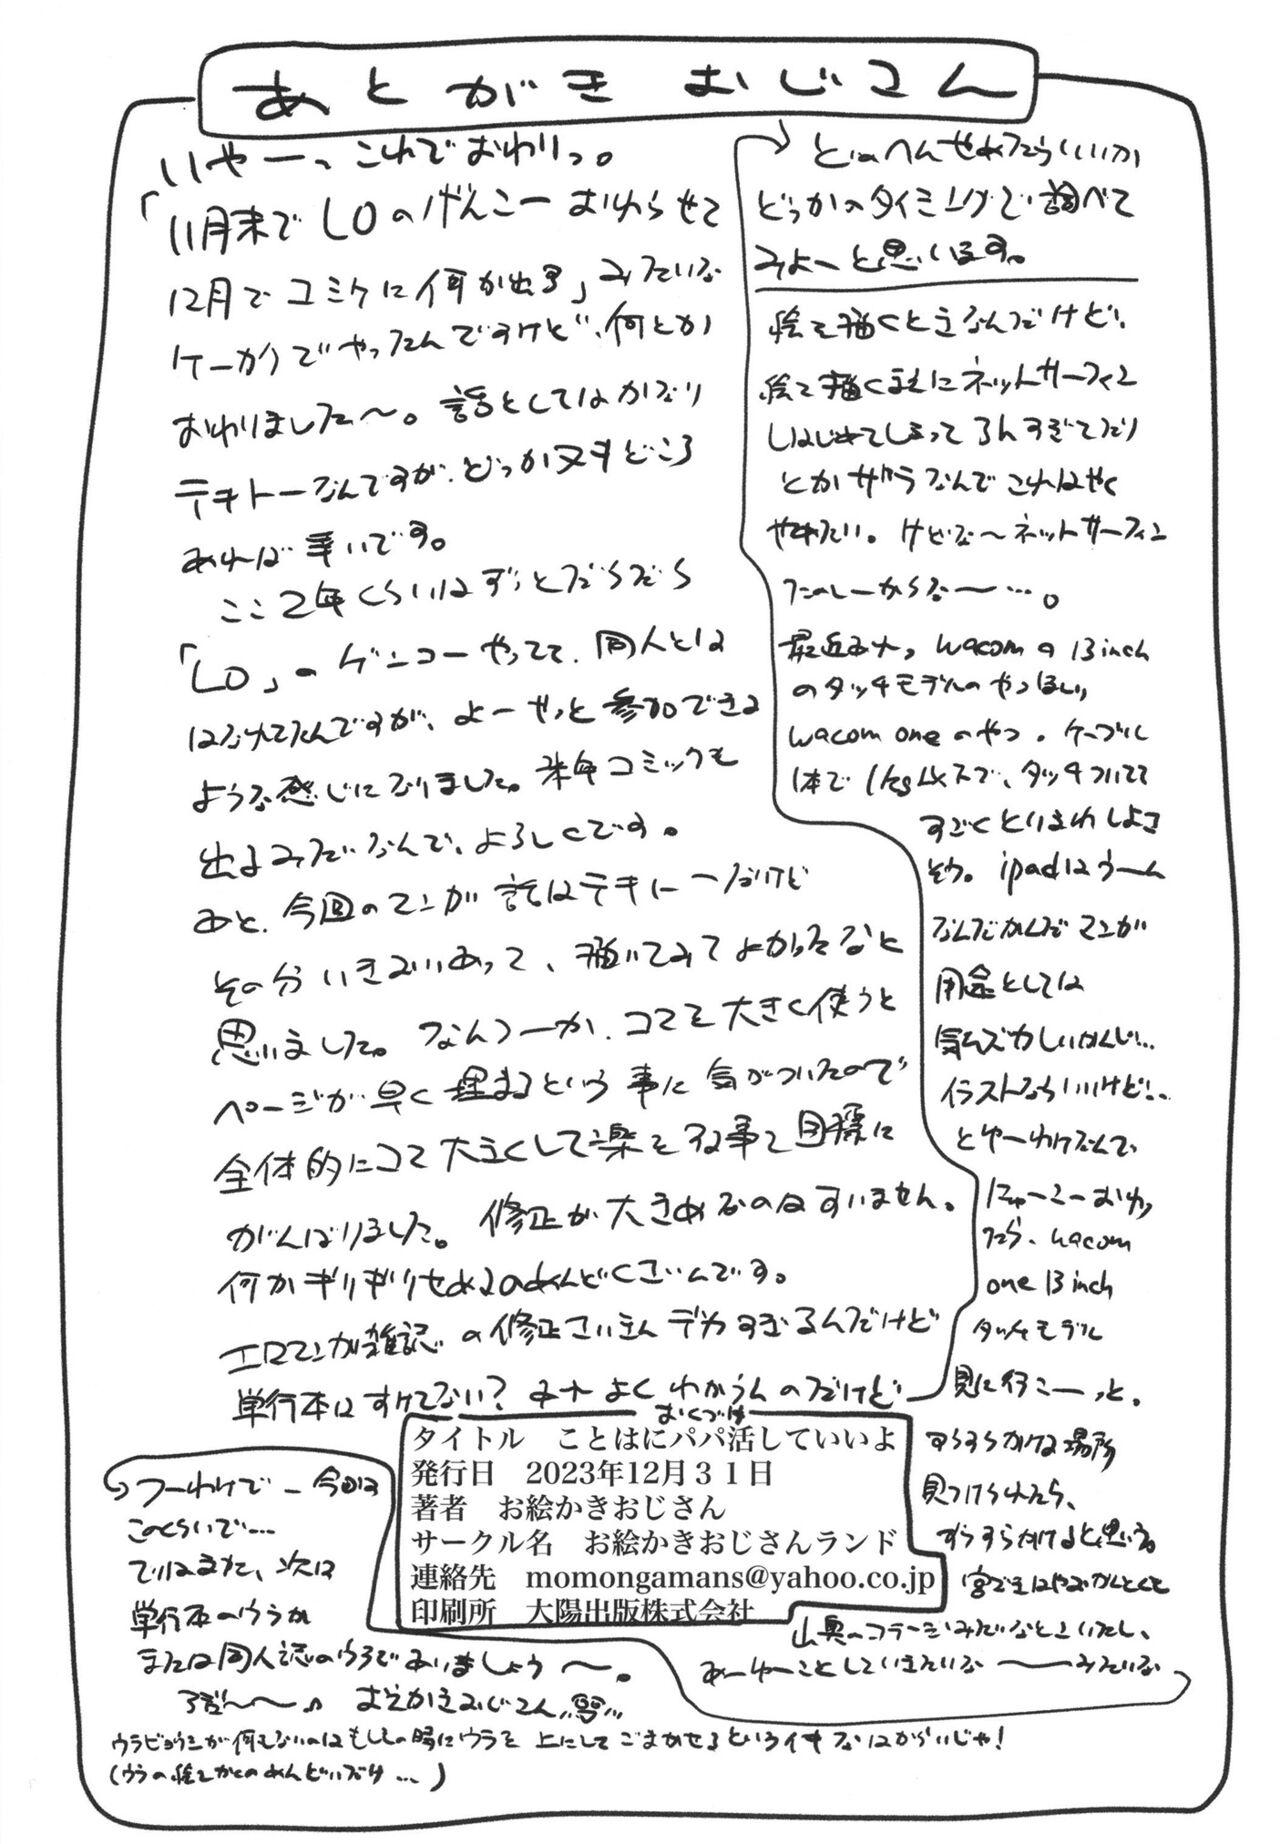 あとがき おじさん
いやーっ これで おわりっ。
「11月末で LOのげんこー おわらせて
12月で コミケに 何か出す」みたいな
ケーカクで やったんですけど、何とか
おわりました〜。話としてはかなり
テキトーなんですが、どっか 見どころ
あれば 幸いです。
ここ2年くらいは ずっとだらだら
「LO」の ゲンコー やってて、同人とは
はなれてたんですが、よーやっと 参加できる
ような感じに なりました。来年 コミックも
出るみたいなんで、よろしくです。
あと、今回のマンが 話はテキトーだけど
その分 いきおいあって、描いてみて よかったなと
思いました。なんつーか、コマを 大きく使うと
ページが 早く 埋まるという 事に 気がついたので
全体的にコマ 大きくして楽をする事を 目標に
がんばりました。修正が 大きめなのは すいません。
何か ギリギリせめるのめんどくさいんです。
エロマンガ雑誌の修正さいきん デカすぎるんだけど
単行本は すけてない? みたいな よく わからんのだけど
どのへんせめたらいいか
どっかのタイミングで 調べて
みよーと思います。
絵を描くときなんだけど、
絵を描くまえに ネットサーフィン
はじめてしまって
とか ザラなんで これはやく
やめたい。けどな〜ネットサーフィン
たのしーからな〜…。
最近 wacomの13inch
のタッチモデルの やつほしい
wacom oneのやつ。ケーブル
1本で 1kg以下で、タッチついてて
すごく とりまわしよさ
そう。ipadはうーん
なんだかんだ マンガ
用途としては
気むずかしいかんじ…
イラストならいいけど…
とゆーわけなんで、
にゅーこー おわっ
たら、wacom
one 13inch
タッチモデル
見に行こーっと。
すらすらかける場所
見つけられたら、
すらすらかけると思う。
宮ざきはやおかんとくも
山奥のコテージみたいなとこいたし、
あーゆーことしていきたいな〜みたいな
つーわけで ー 今回は
このくらいで…
ではまた、次は
単行本のウラか
または同人誌のウラで あいましょう〜。
おえかきおじさん
ウラビョウシが何もないのは もしもの時にウラを 上にして ごまかせるという イキな はからいじゃ!
(ウラの絵 かくの めんどいだけ …)
おくづけ
タイトル　ことはにパパ活していいよ
発行日　2023年12月３１日
著者　お絵かきおじさん
サークル名　お絵かきおじさんランド
連絡先　momongamans@yahoo.co.jp
印刷所　大陽出版株式会社